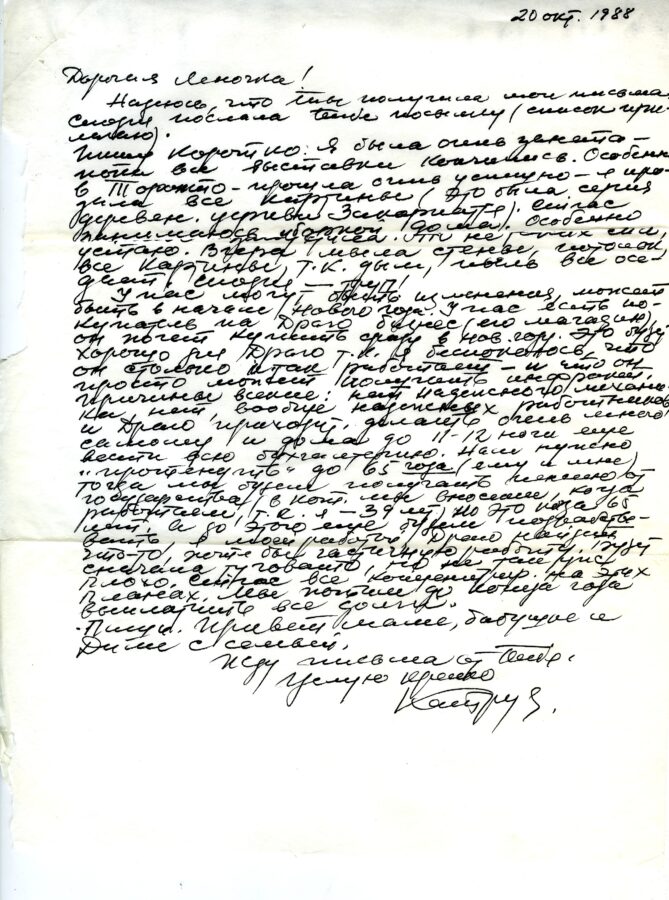 20 окт. 1988
Дорогая Леночка!
Надеюсь, что ты получила мои письма,
сегодня послала тебе посылку (список при-
лагаю).
Пишу коротко: я была очень занята –
пока все выставки кончились. Особенно
в Торонто – прошла очень успешно – я про-
дала все картины (это была серия
деревен. церкви Закарпатья). Сейчас
занимаюсь уборкой дома. Особенно
устаю. Вчера мыла стены, потолок,
все картины, т.к. дым, пыль все осе-
дает, сегодня –
У нас могут быть изменения, может
быть в начале Нового года. У нас есть по-
купатель на Драго бизнес (его магазин),
он хочет купить сразу в Нов. году. Это будет
хорошо для Драго т.к. я беспокоюсь, что
он столько много работает – и что он
просто может получить инфаркт.
Причины всякие: нет надежного механи-
ка, нет вообще надежных работников
и Драго приходит. делать очень много
самому и дома до 11-12 ночи еще
вести всю бухгалтерию. Нам нужно
"протянуть" до 65 года (ему и мне)
тогда мы будем получать пенсию от
государства, в кот. мы вносили, когда
работали (т.к. я – 39 лет) но это когда 65
лет, а до этого еще будем
я моей работой, Драго найдет
что-то, хотя бы частичную работу. Будет
сначала туговато, но не так уж
плохо. Сейчас все концентрир. на этих
планах. Мы хотим до конца года
выплатить все долги.
Пиши. Привет маме, бабушке и
Диме с семьей.
Жду письма от тебя.
Целую крепко